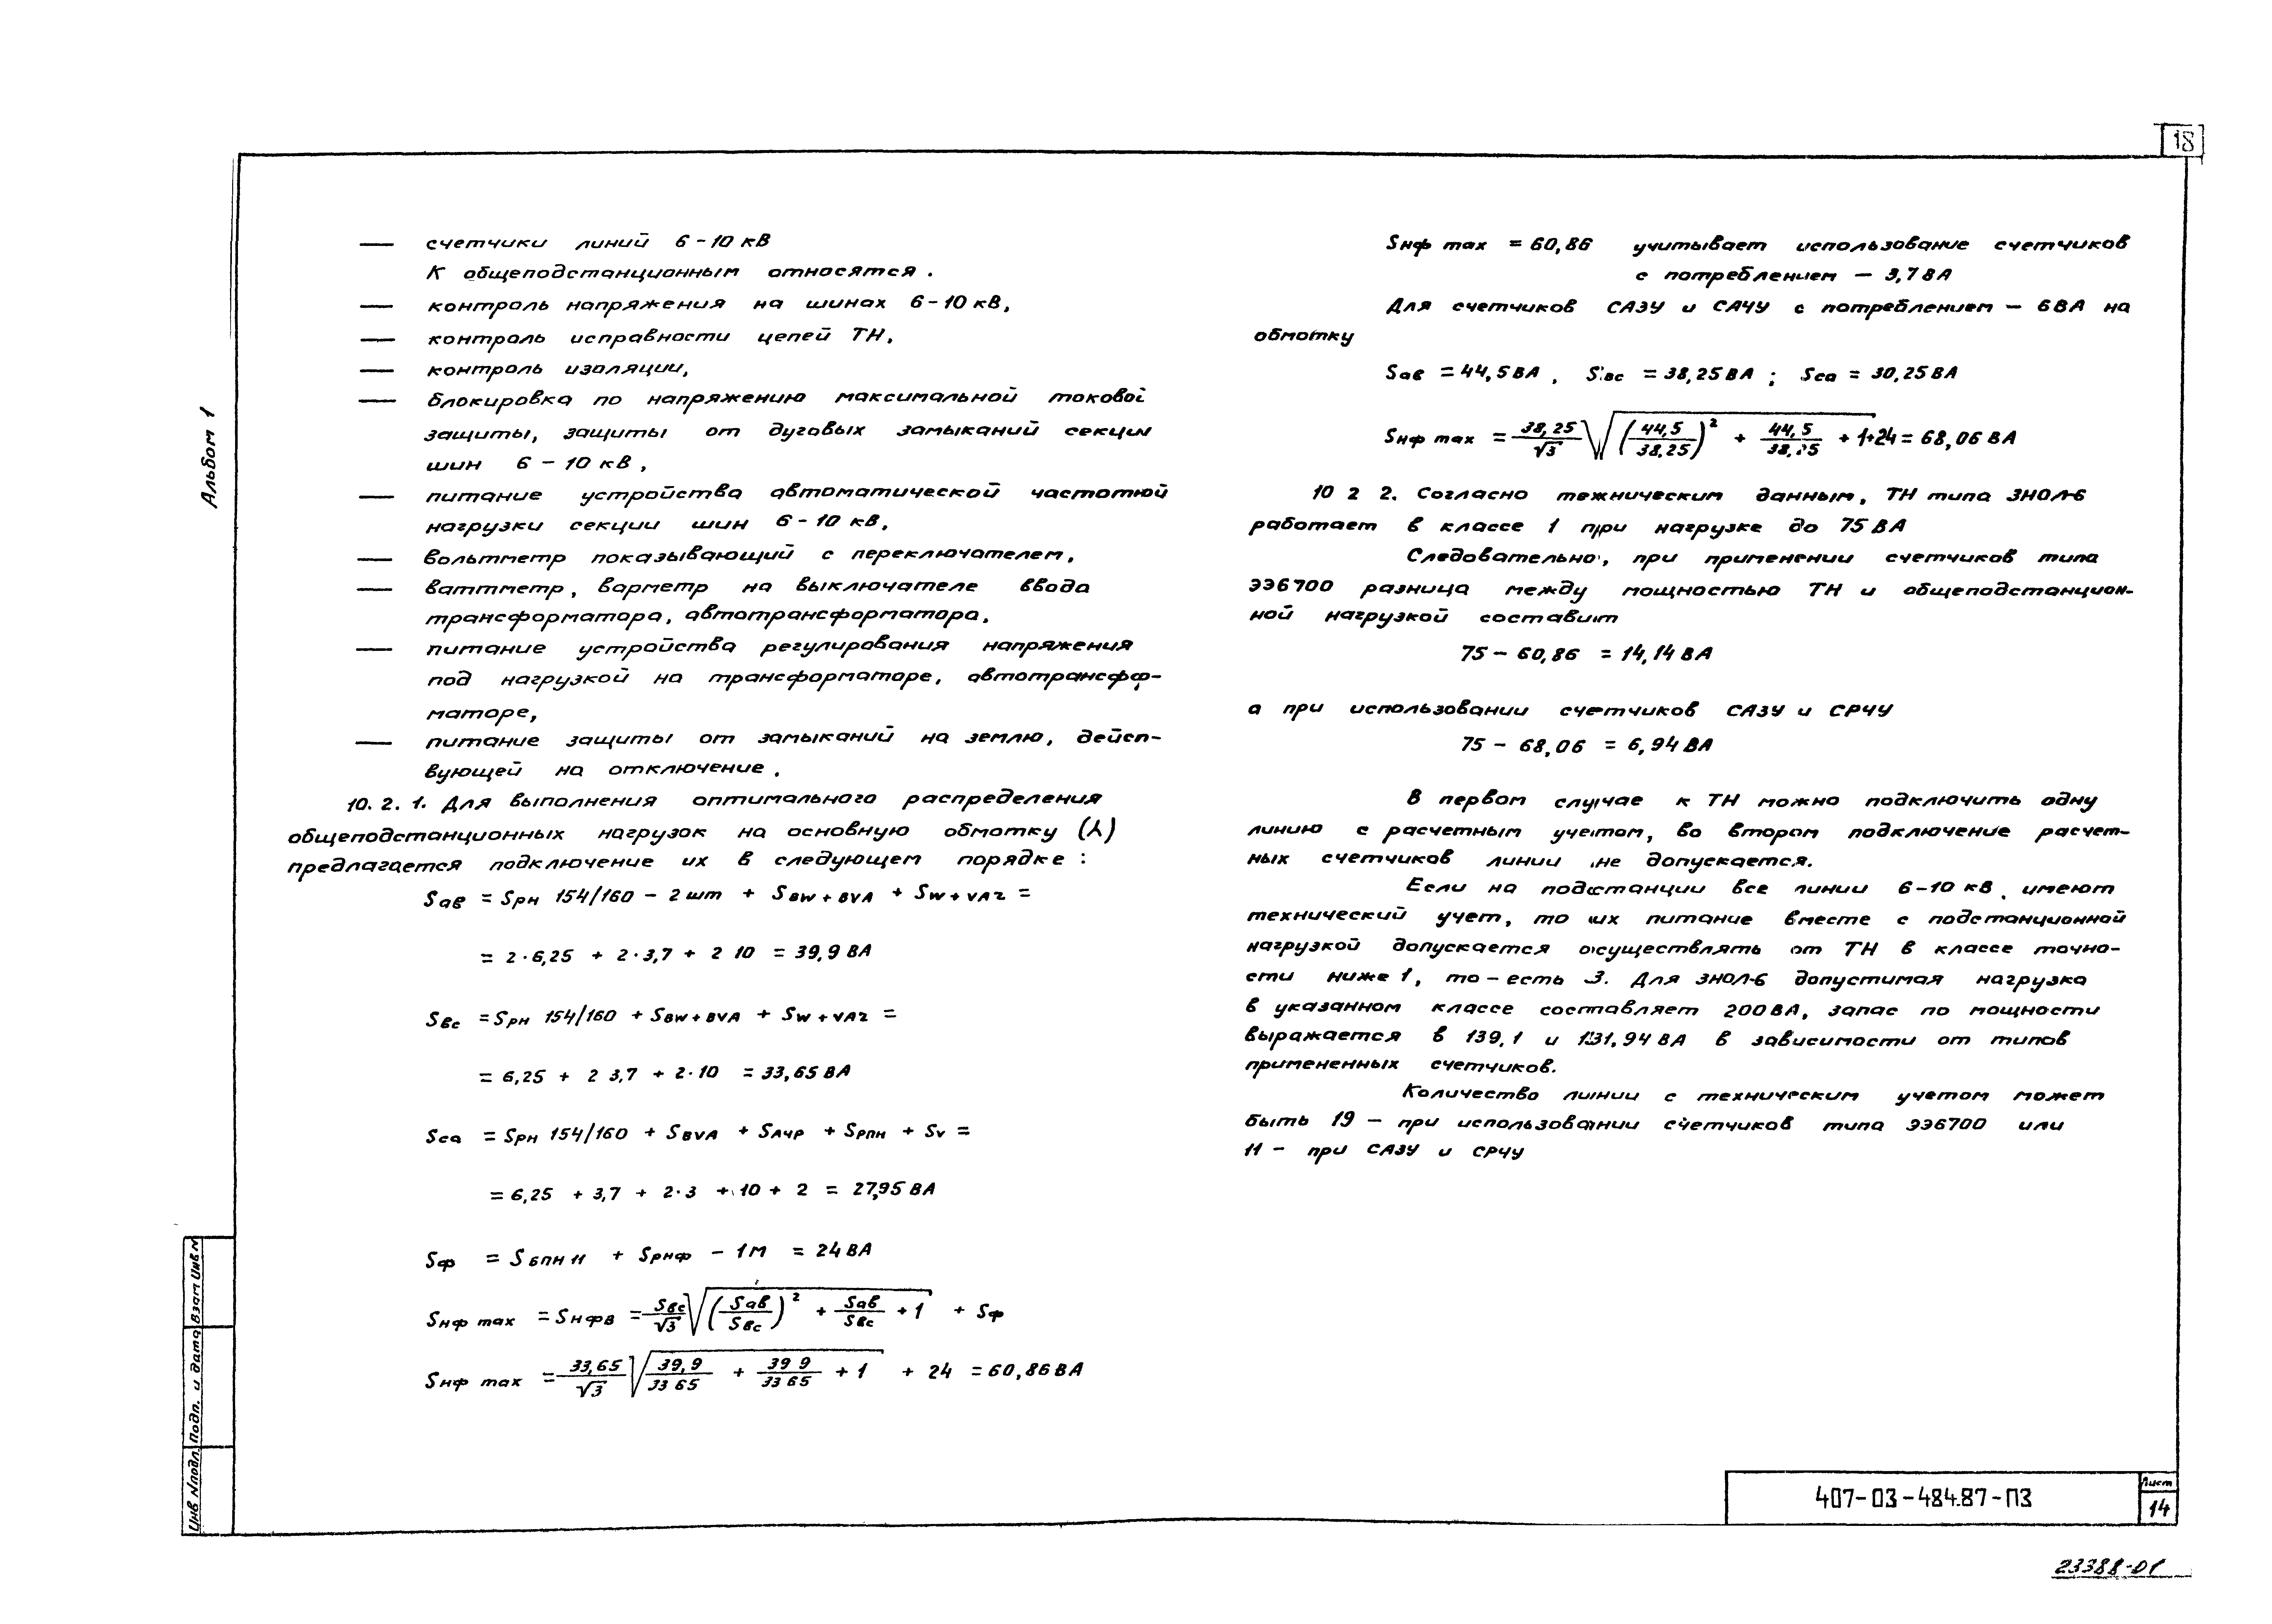 18
Альбом 1
— счетчики линий 6-10 кВ
К общеподстанционным относятся.
— контроль напряжения на шинах 6-10 кВ,
— контроль исправности цепей ТН,
— контроль изоляции,
— блокировка по напряжению максимальной токовой
защиты, защиты от дуговых замыканий секции
шин 6-10 кВ,
— питание устройства автоматической частотной
нагрузки секции шин 6-10 кВ,
— вольтметр показывающий с переключателем,
— ваттметр, варметр на выключателе ввода
трансформатора, автотрансформатора,
— питание устройства регулирования напряжения
под нагрузкой на трансформаторе, автотрансфор-
маторе,
— питание защиты от замыканий на землю, дейст-
вующей на отключение.
10.2.1. Для выполнения оптимального распределения
общеподстанционных нагрузок на основную обмотку (⅄)
предлагается подключение их в следующем порядке:
Sав = Sрн 154/160 - 2 шт + Sвw+вvа + Sw+vа2 =
= 2·6,25 + 2·3,7 + 2 10 = 39,9 ВА
Sвс = Sрн 154/160 + Sвw+вvа + Sw+vа2 =
= 6,25 + 2 3,7 + 2·10 = 33,65 ВА
Sса = Sрн 154/160 + Sвvа + Sачр + Sрпн + Sv =
= 6,25 + 3,7 + 2·3 + 10 + 2 = 27,95 ВА
Sф = Sбпн 11 + Sрнф - 1м = 24 ВА
Sнф max = Sнфв = Sвс/√3 √((Sав/Sвс)² + Sав/Sвс + 1) + Sф
Sнф max = 33,65/√3 √(39,9/33 65 + 39 9/33 65 + 1) + 24 = 60,86 ВА
Sнф max = 60,86 учитывает использование счетчиков
с потреблением — 3,7 ВА
Для счетчиков САЗУ и САЧУ с потреблением — 6 ВА на
обмотку
Sав = 44,5 ВА, Sвс = 38,25 ВА; Sса = 30,25 ВА
Sнф max = 38,25/√3 √((44,5/38,25)² + 44,5/38,25 + 1+24 = 68,06 ВА
10 2 2. Согласно техническим данным, ТН типа ЗНОЛ-6
работает в классе 1 при нагрузке до 75 ВА
Следовательно, при применении счетчиков типа
ЭЭ6700 разница между мощностью ТН и общеподстанцион-
ной нагрузкой составит
75 - 60,86 = 14,14 ВА
а при использовании счетчиков САЗУ и СРЧУ
75 - 68,06 = 6,94 ВА
В первом случае к ТН можно подключить одну
линию с расчетным учетом, во втором подключение расчет-
ных счетчиков линии не допускается.
Если на подстанции все линии 6-10 кВ имеют
технический учет, то их питание вместе с подстанционной
нагрузкой допускается осуществлять от ТН в классе точно-
сти ниже 1, то-есть 3. Для ЗНОЛ-6 допустимая нагрузка
в указанном классе составляет 200 ВА, запас по мощности
выражается в 139,1 и 131,94 ВА в зависимости от типов
примененных счетчиков.
Количество линии с техническим учетом может
быть 19 - при использовании счетчиков типа ЭЭ6700 или
11 - при САЗУ и СРЧУ
Инв № подл. Подп. и дата Взам Инв №
407-03-484.87-ПЗ
Лист
14
23388-01